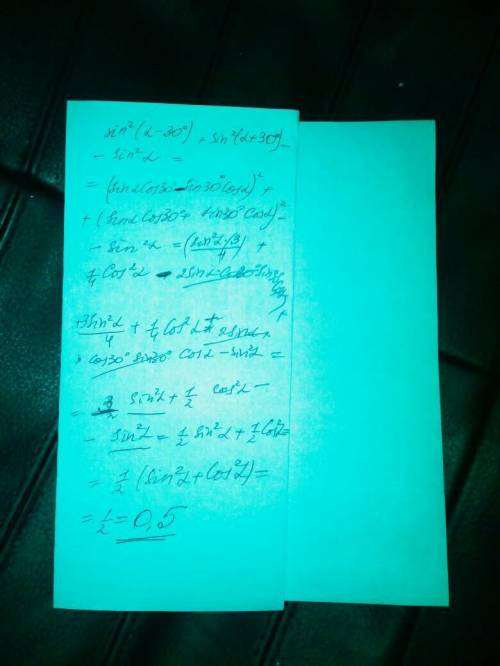 sin²(α-30°) + sin²(α+30°) -
- sin²α =
= (sinα cos30 - sin30° cosα)² +
+ (sinα cos30° + sin30° cosα)² -
- sin²α = (sin²α·3/4) +
1/4 cos²α - 2sinα cos30° sin30
+ 3sin²α/4 + 1/4 cos²α + 2sinα ×
× cos30° sin30° cosα - sin²α =
= 3/2 sin²α + 1/2 cos²α -
- sin²α = 1/2 sin²α + 1/2 cos²α =
= 1/2 (sin²α + cos²α) =
= 1/2 = 0,5